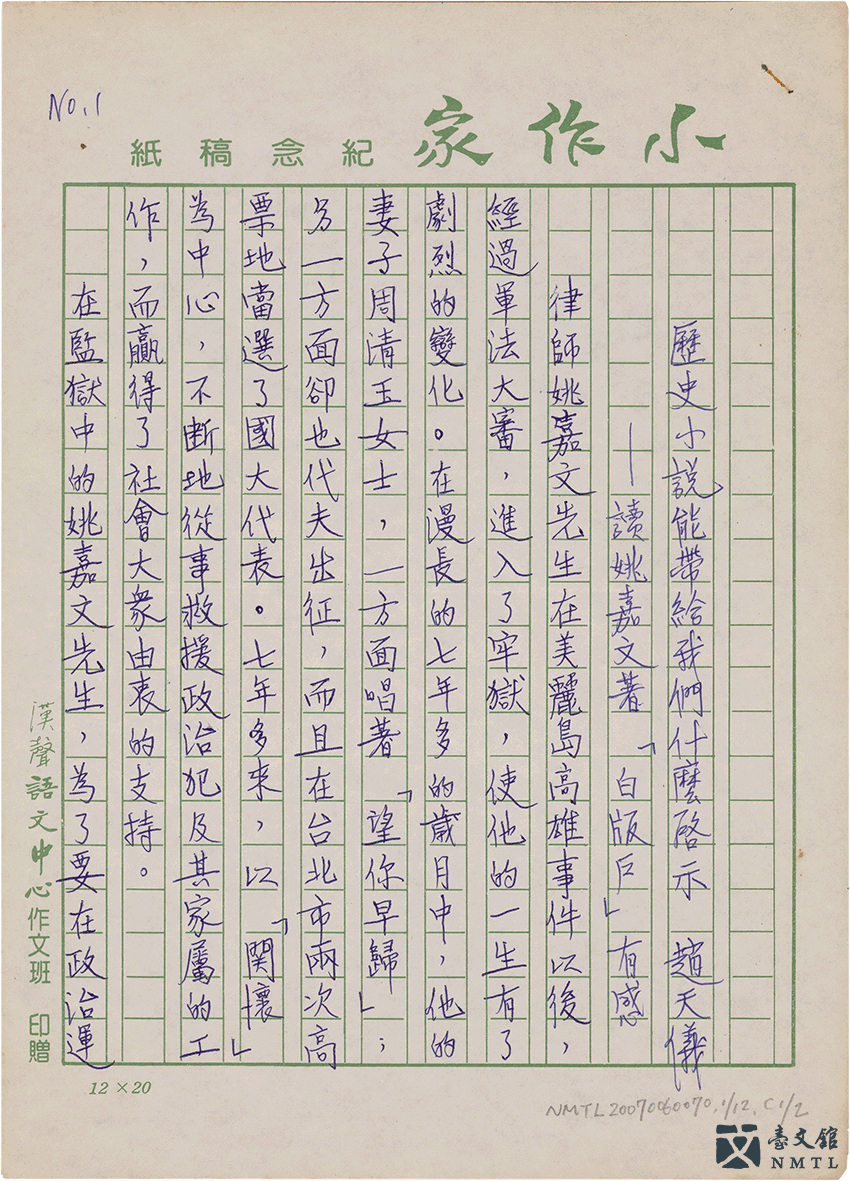 No.1
小作家紀念稿紙
歷史小說能帶給我們什麼啓示 趙天儀
——讀姚嘉文著「白版戶」有感
律師姚嘉文先生在美麗島高雄事件以後，
經過軍法大審，進入了牢獄，使他的一生有了
劇烈的變化。在漫長的七年多的歲月中，他的
妻子周清玉女士，一方面唱著「望你早歸」；
另一方面卻也代夫出征，而且在台北市兩次高
票地當選了國大代表。七年多來，以「関懷」
為中心，不断地從事救援政治犯及其家屬的工
作，而贏得了社會大眾由衷的支持。
在監獄中的姚嘉文先生，為了要在政治運
漢聲語文中心作文班 印贈
12×20
NMTL20070060070,1/12,C1/2
臺文館
NMTL